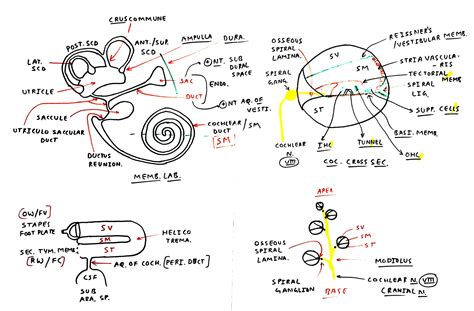 CRUS COMMUNE
POST. SCD
ANT./SUP. SCD
AMPULLA
DURA.
LAT. SCD
SAC
ENDO.
DUCT
INT. SUB DURAL SPACE
INT AQ. OF VESTI.
UTRICLE
SACCULE
UTRICULO SACCULAR DUCT
DUCTUS REUNION.
COCHLEAR DUCT/SM
[SM]
MEMB. LAB.
OSSEOUS SPIRAL LAMINA.
SPIRAL GANG.
REISSNER'S/VESTIBULAR MEMB.
STRIA VASCULARIS
TECTORIAL MEMB
SPIRAL LIG.
SUPP. CELLS
BASI. MEMB.
OHC
TUNNEL
IHC
SV
SM
ST
COCHLEAR N. VIII
COC. CROSS SEC.
[OW/FV]
STAPES FOOT PLATE
SEC. TYM. MEMB.
[RW/FC]
SV
SM
ST
HELICO TREMA.
AQ. OF COCH. [PERI. DUCT]
CSF
SUB ARA. SP.
APEX
SV
SM
ST
OSSEOUS SPIRAL LAMINA.
SPIRAL GANGLION
MODIOLUS
COCHLEAR N. VIII
CRANIAL N.
BASE